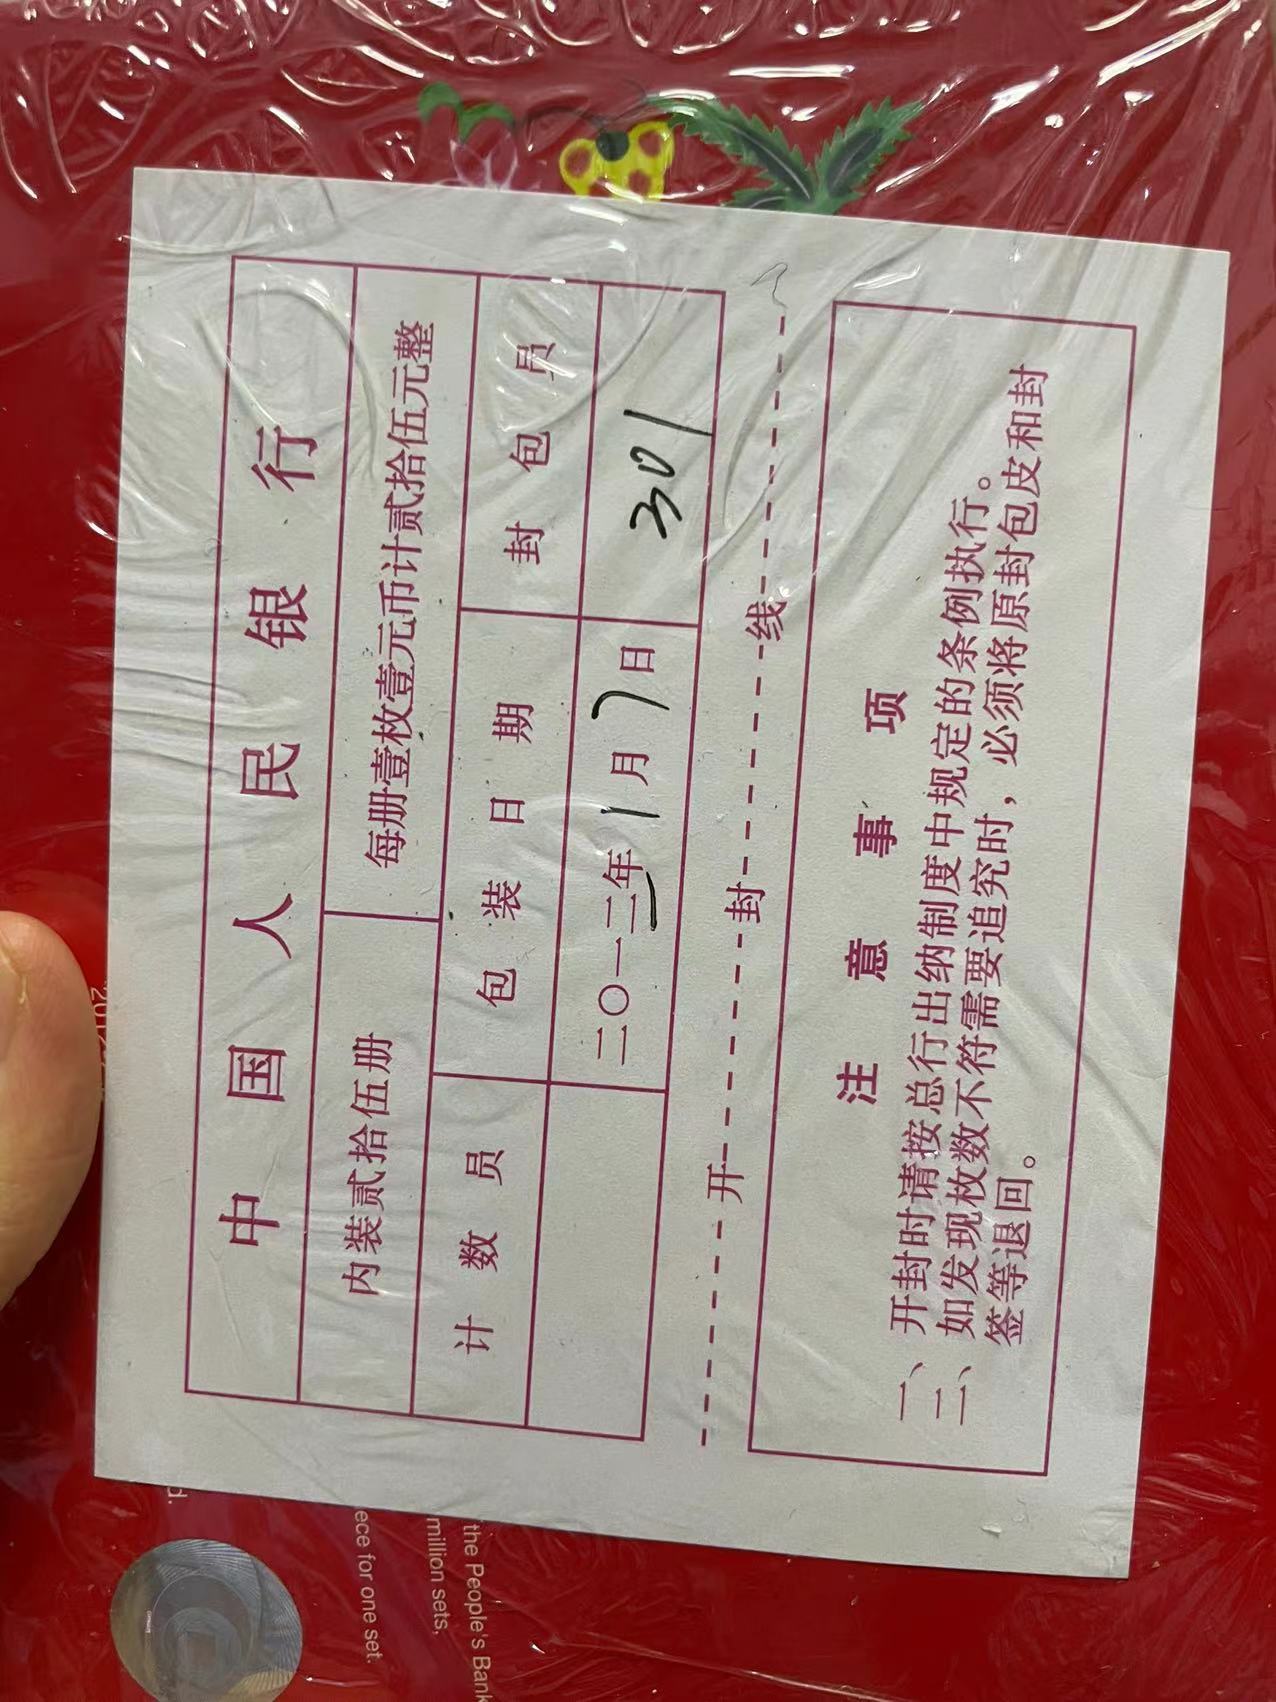 中国人民银行
内装贰拾伍册 每册壹枚壹元币计贰拾伍元整
计数员 包装日期 封包员
二〇一三年1月7日 301
开封线
注意事项
一、开封时请按总行出纳制度中规定的条例执行。
二、如发现枚数不符需要追究时，必须将原封包皮和封
签等退回。
the People's Bank
million sets,
ece for one set.
d.